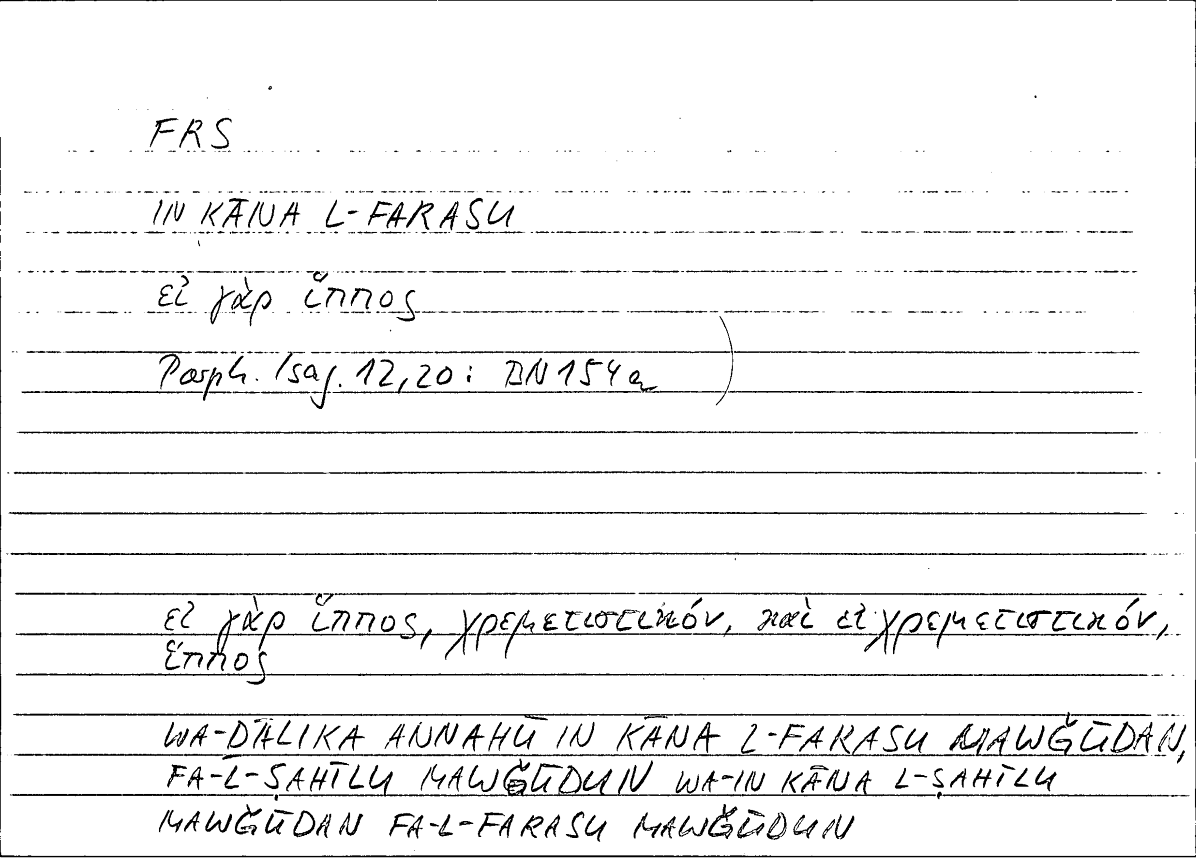 FRS
IN KĀNA L-FARASU
εἰ γὰρ ἵππος
Porph. Isag. 12,20: DN 154a
εἰ γὰρ ἵππος, χρεμετιστικόν, καὶ εἰ χρεμετιστικόν,
ἵππος
WA-ḎĀLIKA ANNAHŪ IN KĀNA L-FARASU MAWǦŪDAN,
FA-L-ṢAHĪLU MAWǦŪDUN WA-IN KĀNA L-ṢAHĪLU
MAWǦŪDAN FA-L-FARASU MAWǦŪDUN